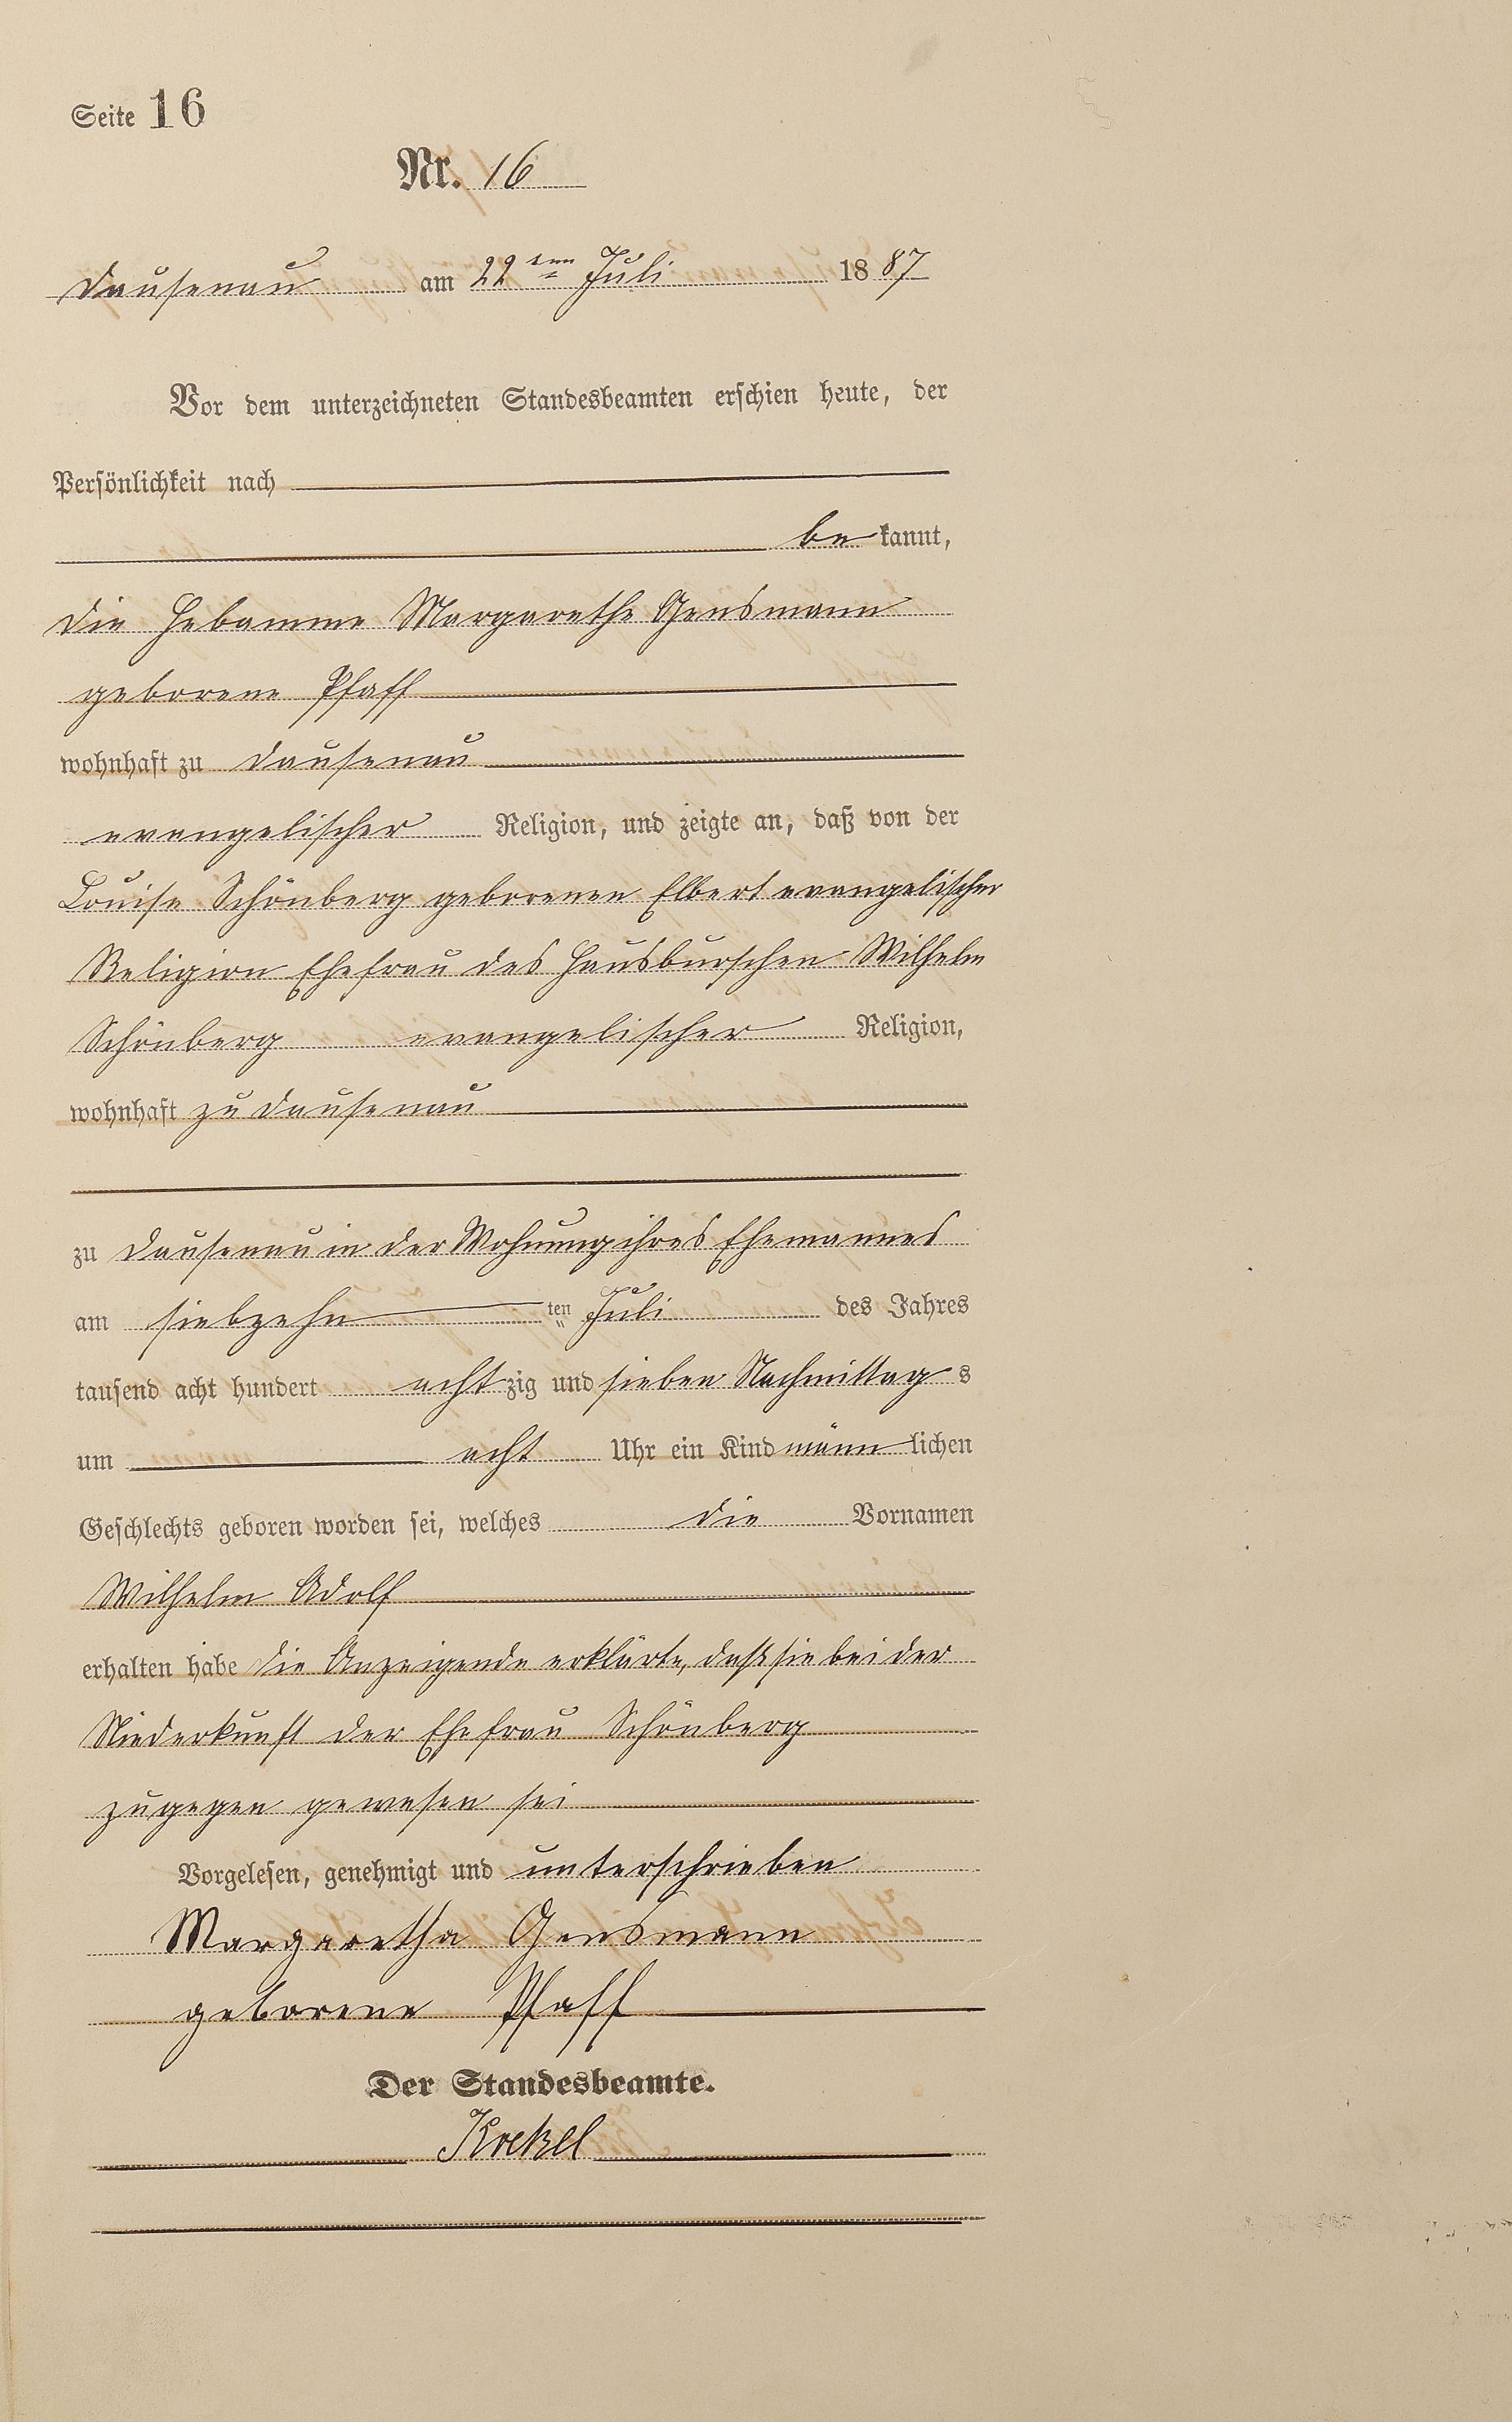 Seite 16
Nr. 16
Dausenau am 22ten Juli 1887
Vor dem unterzeichneten Standesbeamten erschien heute, der
Persönlichkeit nach
be kannt,
die Hebamme Margarethe Gensmann
geborene Pfaff
wohnhaft zu Dausenau
evangelischer Religion, und zeigte an, daß von der
Louise Schönberg geborenen Elbert evangelischer
Religion Ehefrau des Hausburschen Wilhelm
Schönberg evangelischer Religion,
wohnhaft zu Dausenau
zu Dausenau in der Wohnung ihres Ehemannes
am siebzehn ten Juli des Jahres
tausend acht hundert acht zig und sieben Nachmittag s
um acht Uhr ein Kind männ lichen
Geschlechts geboren worden sei, welches die Vornamen
Wilhelm Adolf
erhalten habe die Anzeigende erklärte, daß sie bei der
Niederkunft der Ehefrau Schönberg
zugegen gewesen sei
Vorgelesen, genehmigt und unterschrieben
Margaretha Gensmann
geborene Pfaff
Der Standesbeamte.
Krekel